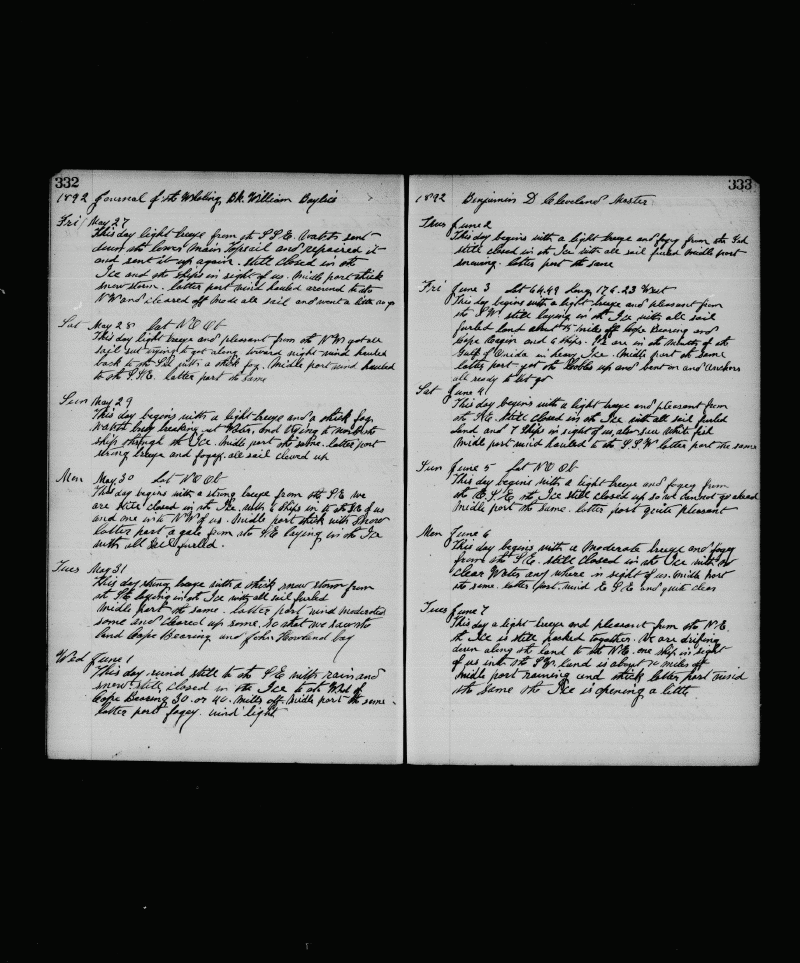 332
1892 Journal of the Whaling Bk. William Baylies
Fri May 27
This day light breeze from the S.S.E. Watch sent
down the lower main topsail and repaired it
and sent it up again. still closed in the
Ice and the ships in sight of us. Midle part thick
snow storm. latter part wind hauled around to the
NW and cleared off made all sail and went a little
Sat May 28 Lat NO Ob
This day light breeze and pleasant from the NW got all
sail set trying to get along toward night wind hauled
back to the with a thick fog. Midle part wind hauled
to the S.S.E. latter part the same
Sun May 29
This day begins with a light breeze and a thick fog.
Watch busy breaking out Water, and trying to work the
ship through the Ice. Midle part the same. latter part
strong breeze and foggy. all sail clewed up
Mon May 30 Lat NO Ob
This day begins with a strong breeze from the S.E. we
are still closed in the Ice with ships in to the NE of us
and one in to NW of us. Midle part thick with snow
latter part a gale from the S.E. laying in the Ice
with all sail furled.
Tues May 31
This day strong breeze with a thick snow storm from
the S.E. laying in the Ice with all sail furled
Midle part the same. latter part wind moderated
some and cleared up some. So that we saw the
land Cape Bearing and John Howland bay
Wed June 1
This day wind still to the S.E. with rain and
snow still closed in the Ice to the Wd of
Cape Bearing 30. or 40. miles off. Midle part the same.
latter part foggy. wind light
333
1892 Benjamin D Cleveland Master
Thus June 2
This day begins with a light breeze and fogy from the Sd
still closed in the Ice with all sail furled midle part
snowing. latter part the same
Fri June 3 Lat 61.49 Long 176.23 West
This day begins with a light breeze and pleasant from
the SW. still laying in the Ice with all sail
furled land about 15 miles off Cape Bearing and
Cape and 6 ships. We are in the Mouth of the
Gulf of in heavy Ice. Midle part the same
latter part got the up and bent on and anchors
all ready to let go
Sat June 4
This day begins with a light breeze and pleasant from
the NE. still closed in the Ice with all sail furled
land and 7 ships in sight of us, also saw White fish
Midle part wind hauled to the S.S.W latter part the same
Sun June 5 Lat NO Ob
This day begins with a light breeze and fogey from
the E.S.E. the Ice still closed up so we can not go ahead
Midle part the same. latter part quite pleasant
Mon June 6
This day begins with a Moderate breeze and fogey
from the S.E. still closed in the Ice with no
clear Water any where in sight of us. Midle part
the same. latter part wind E S E and quite clear
Tues June 7
This day a light breeze and pleasant from the N.E.
the Ice is still packed together. We are drifting
down along the land to the N.E. one ship in sight
of us in to the SW. land is about 20 miles off
Midle part raining and thick latter part wind
the same the Ice is opening a little